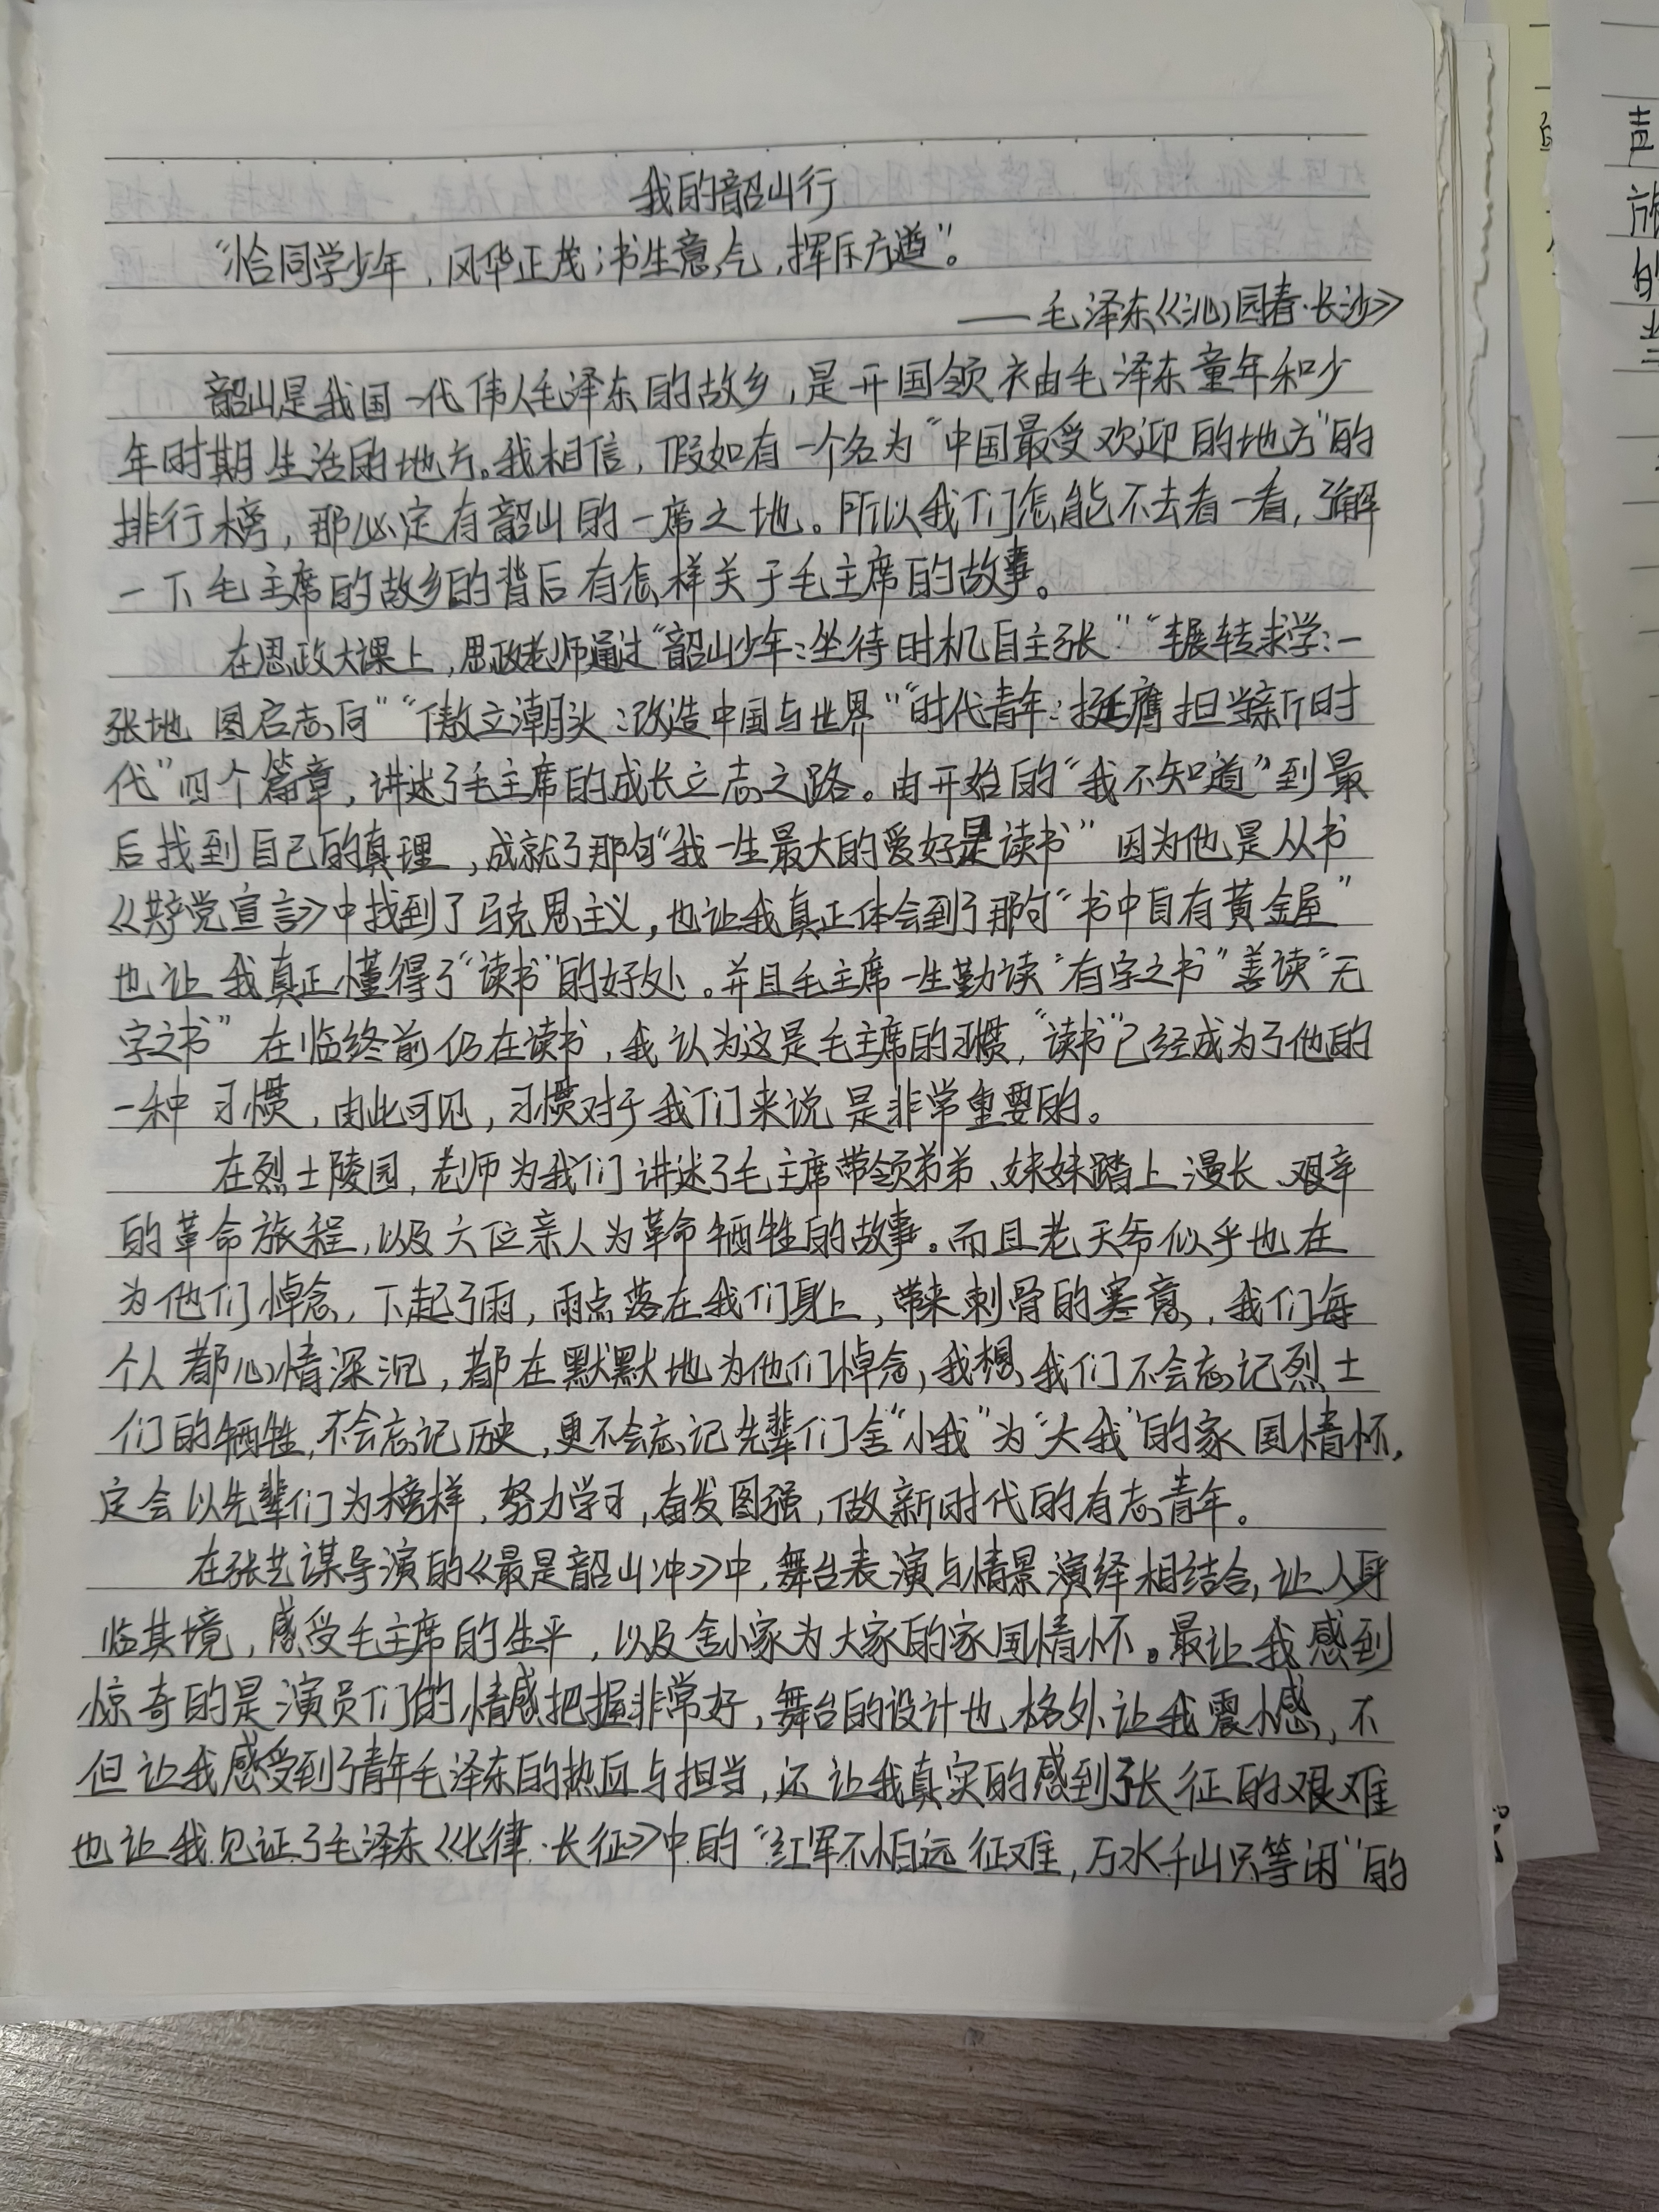 我的韶山行
“恰同学少年，风华正茂；书生意气，挥斥方遒”。
——毛泽东《沁园春·长沙》
韶山是我国一代伟人毛泽东的故乡，是开国领袖毛泽东童年和少
年时期生活的地方。我相信，假如有一个名为“中国最受欢迎的地方”的
排行榜，那必定有韶山的一席之地。所以我们怎能不去看一看，了解
一下毛主席的故乡的背后有怎样关于毛主席的故事。
在思政大课上，思政老师通过“韶山少年：坐待时机自主张”“辗转求学：一
张地图启志向”“傲立潮头：改造中国与世界”“时代青年：挺膺担当新时
代”四个篇章，讲述了毛主席的成长立志之路。由开始的“我不知道”到最
后找到自己的真理，成就了那句“我一生最大的爱好是读书”因为他是从书
《共产党宣言》中找到了马克思主义，也让我真正体会到了那句“书中自有黄金屋”
也让我真正懂得了“读书”的好处。并且毛主席一生勤读“有字之书”善读“无
字之书”在临终前仍在读书，我认为这是毛主席的习惯，“读书”已经成为了他的
一种习惯，由此可见，习惯对于我们来说是非常重要的。
在烈士陵园，老师为我们讲述了毛主席带领弟弟、妹妹踏上漫长、艰辛
的革命旅程，以及六位亲人为革命牺牲的故事。而且老天爷似乎也在
为他们悼念，下起了雨，雨点落在我们身上，带来刺骨的寒意，我们每
个人都心情深沉，都在默默地为他们悼念，我想，我们不会忘记烈士
们的牺牲，不会忘记历史，更不会忘记先辈们舍“小我”为“大我”的家国情怀，
定会以先辈们为榜样，努力学习，奋发图强，做新时代的有志青年。
在张艺谋导演的《最是韶山冲》中，舞台表演与情景演绎相结合，让人身
临其境，感受毛主席的生平，以及舍小家为大家的家国情怀。最让我感到
惊奇的是演员们的情感把握非常好，舞台的设计也格外让我震憾，不
但让我感受到了青年毛泽东的热血与担当，还让我真实的感到了长征的艰难
也让我见证了毛泽东《七律·长征》中的“红军不怕远征难，万水千山只等闲”的